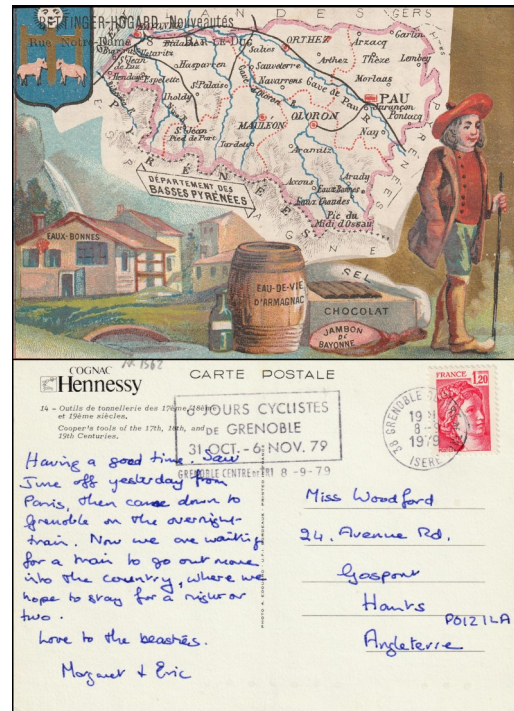 BETTINGER-HOGARD, Nouveautés
Rue Notre-Dame, 8 BAR-LE-DUC
LANDES
GERS
ORTHEZ
Arzacq
Garlin
Salies
Arthez
Thèze
Lembey
Hasparren
Sauveterre
St Jean de Luz
Hendaye
Espelette
St Palais
Navarrenx
Morlaas
Gave de Pau
PAU
Iholdy
Gave d'Oloron
OLORON
Pontacq
Nay
MAULÉON
St Jean
Pied de Port
Tardets
Aramitz
Arudy
Accous
Eaux Bonnes
Eaux Chaudes
Pic du
Midi d'Ossau
PYRÉNÉES
DÉPARTEMENT DES
BASSES PYRÉNÉES
EAUX-BONNES
EAU-DE-VIE
D'ARMAGNAC
SEL
CHOCOLAT
JAMBON
DE
BAYONNE
M 1562
COGNAC
Hennessy
CARTE POSTALE
14 - Outils de tonnellerie des 17ème, 18ème
et 19ème siècles.
Cooper's tools of the 17th, 18th, and
19th Centuries.
JOURS CYCLISTES
DE GRENOBLE
31 OCT. - 6 NOV. 79
GRENOBLE CENTRE DE TRI 8 -9 -79
38 GRENOBLE
1979
ISERE
FRANCE
1,20
Having a good time. Saw
June off yesterday from
Paris, then came down to
Grenoble on the overnight
train. Now we are waiting
for a train to go out more
into the country, where we
hope to stay for a night or
two.
Love to the beasties.
Margaret & Eric
Miss Woodford
24. Avenue Rd.
Gosport
Hants
PO12 1LA
Angleterre